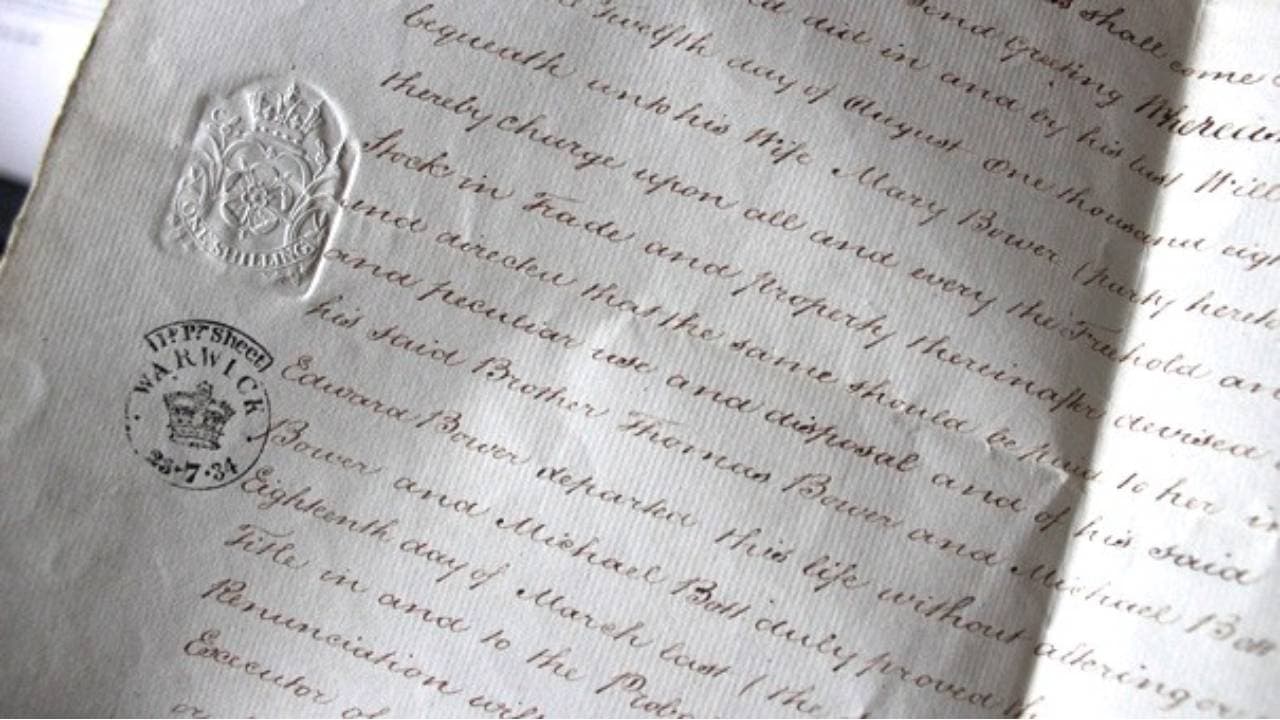 shall come
Send Greeting Whereas
did in and by his last Will
Twelfth day of August One thousand eigh
bequeath unto his Wife Mary Bower (party hereto
thereby charge upon all and every the Freehold an
Stock in Trade and property thereinafter devised
and directed that the same should be paid to her in
and peculiar use and disposal and of his said
his said Brother Thomas Bower and Michael Bott
Edward Bower departed this life without altering or
Bower and Michael Bott duly proved th
Eighteenth day of March last (the
Title in and to the Proba
Renunciation will
Executor of
ONE SHILLING
Sheet
WARWICK
7·34